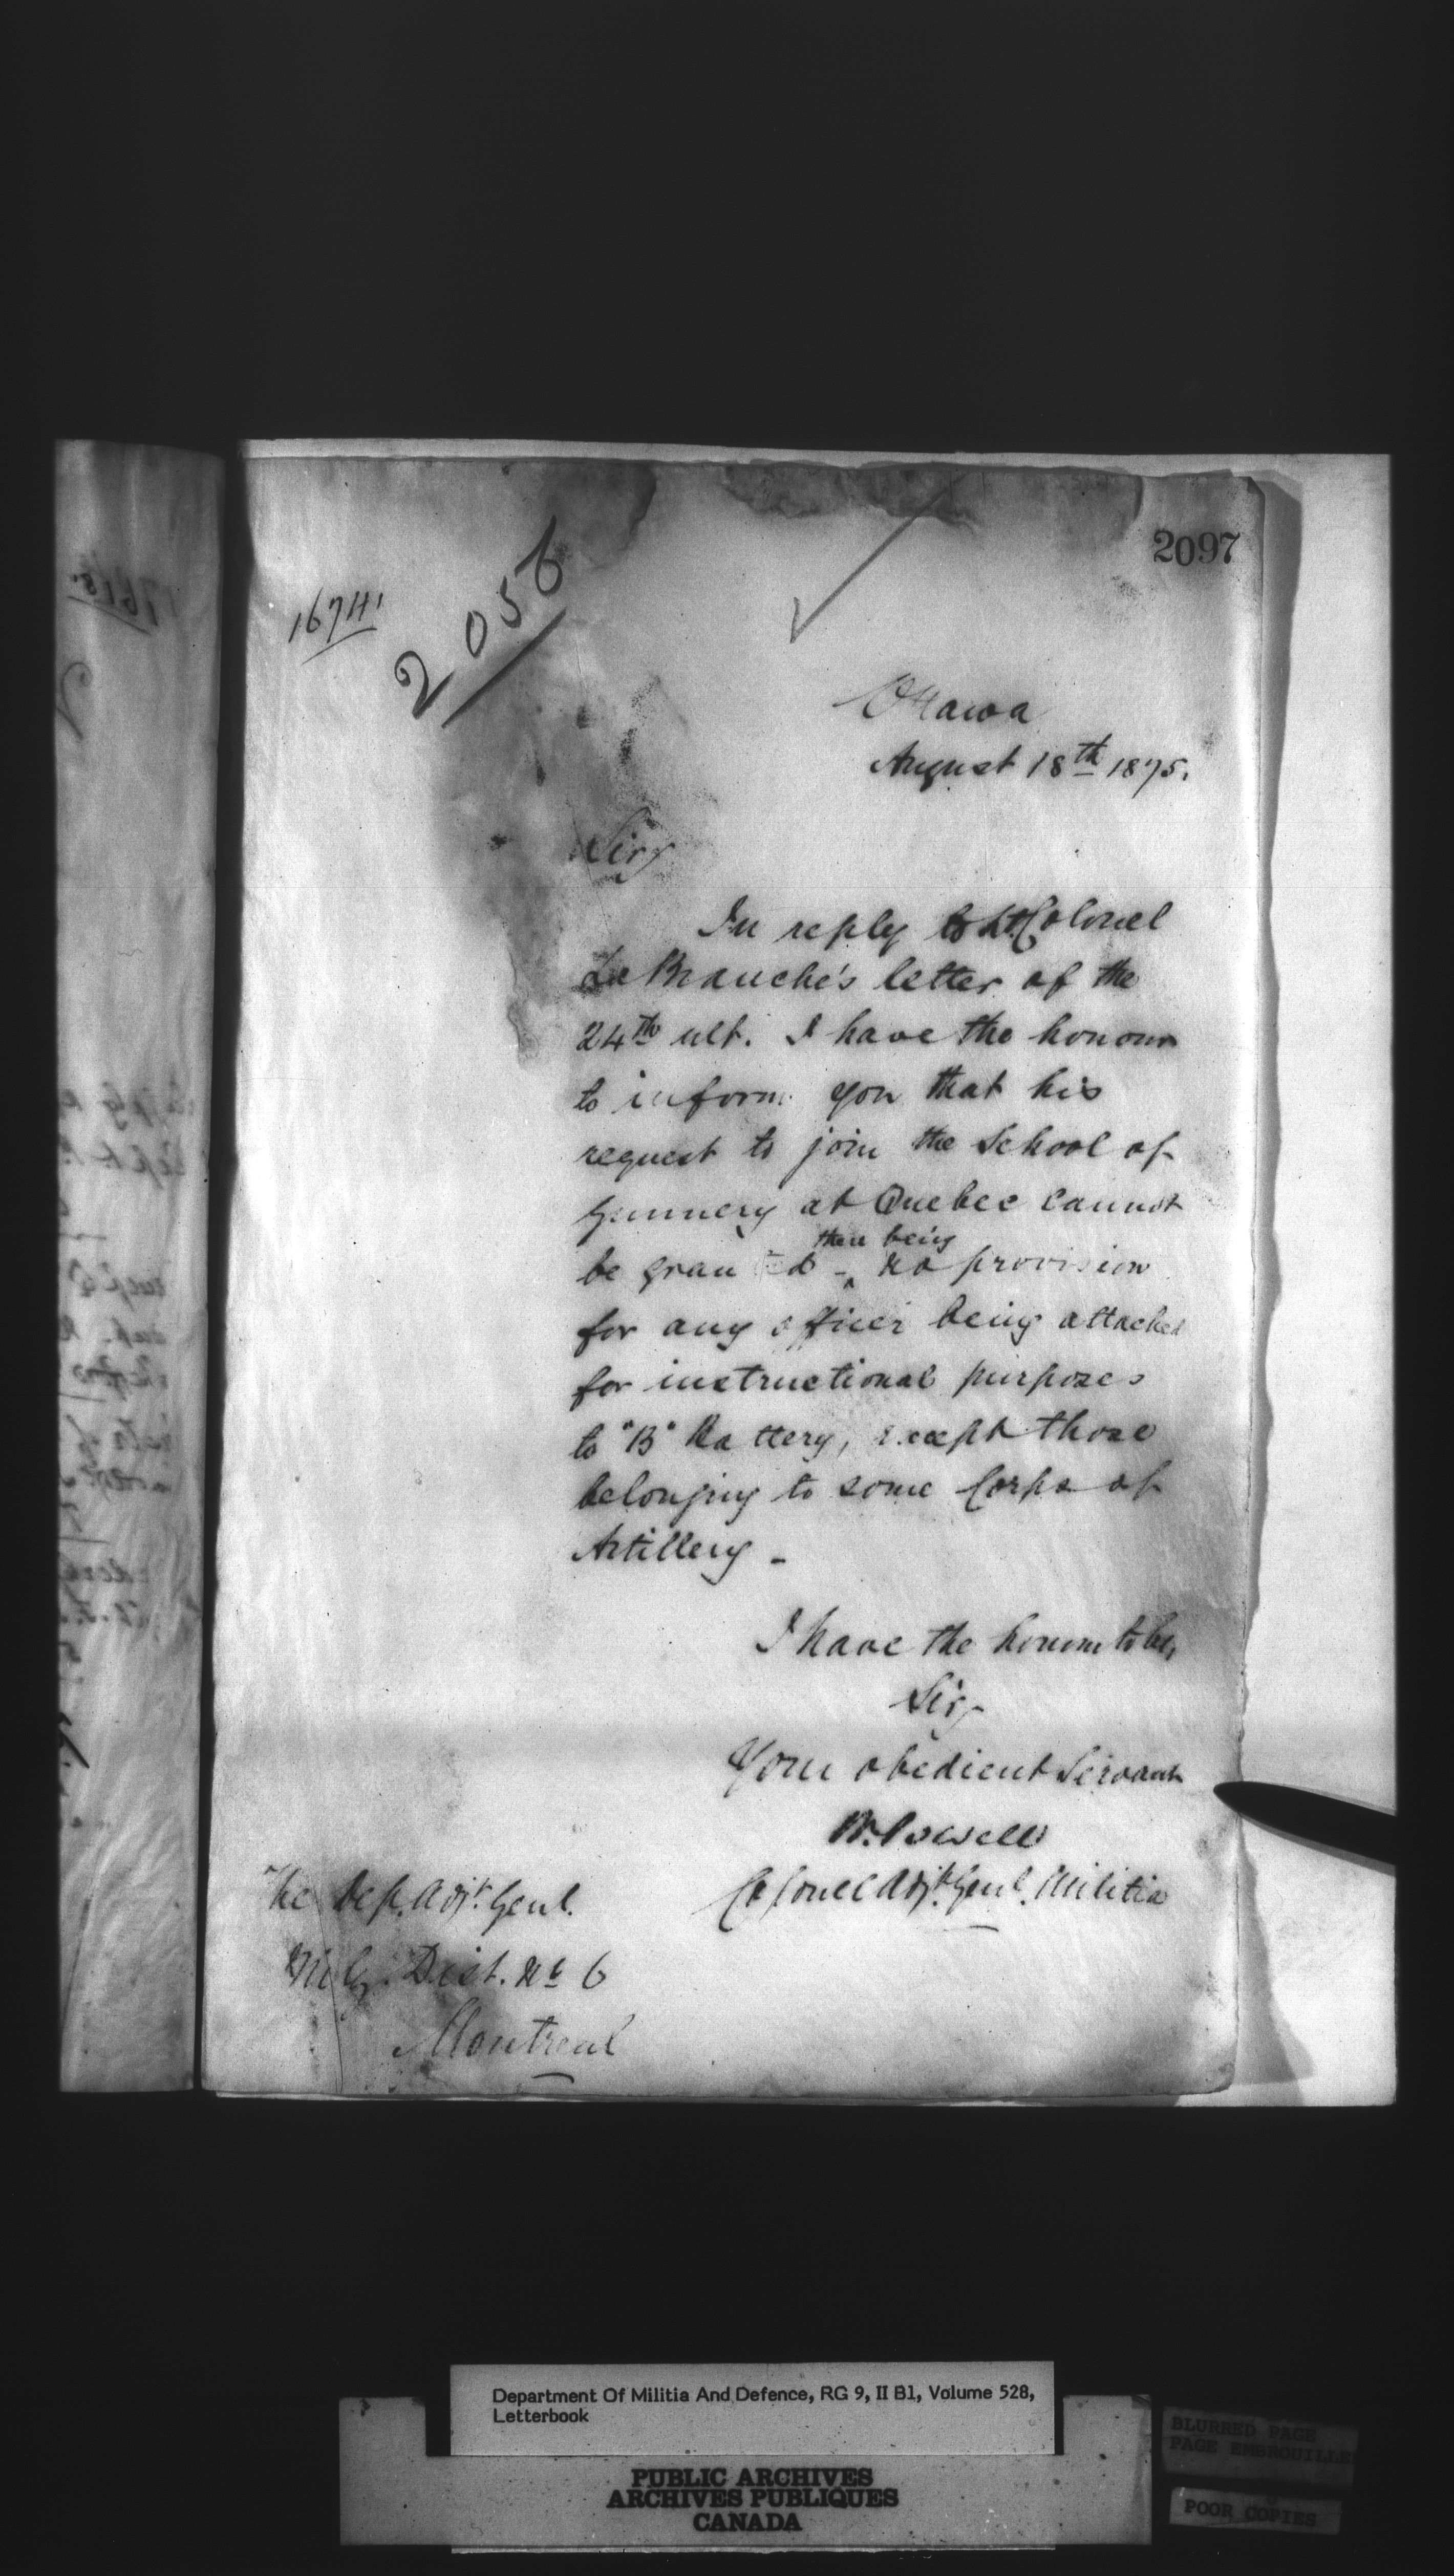 2097
16741
2056
Ottawa
August 18th 1875.
Sir,
In reply to Lt. Colonel
LaBranche's letter of the
24th ult. I have the honour
to inform you that his
request to join the School of
Gunnery at Quebec cannot
there being
be granted - ^ no provision
for any officer being attached
for instructional purposes
to "B" Battery, except those
belonging to some Corps of
Artillery -
I have the honour to be,
Sir,
Your obedient Servant
W. Powell
Colonel Adjt. Genl. Militia
The Dep. Adjt. Genl.
Mily. Dist. No 6
Montreal
Department Of Militia And Defence, RG 9, II B1, Volume 528,
Letterbook
PUBLIC ARCHIVES
ARCHIVES PUBLIQUES
CANADA
BLURRED PAGE
PAGE EMBROUILLEE
POOR COPIES